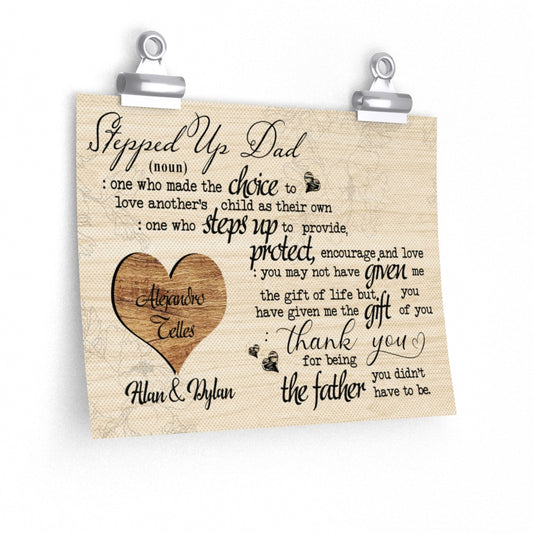 Stepped Up Dad
(noun)
: one who made the choice to
love another's child as their own
: one who steps up to provide,
protect, encourage and love
: you may not have given me
the gift of life but, you
have given me the gift of you
: thank you
for being
the father you didn't
have to be.
Alejandro
Telles
Alan & Dylan